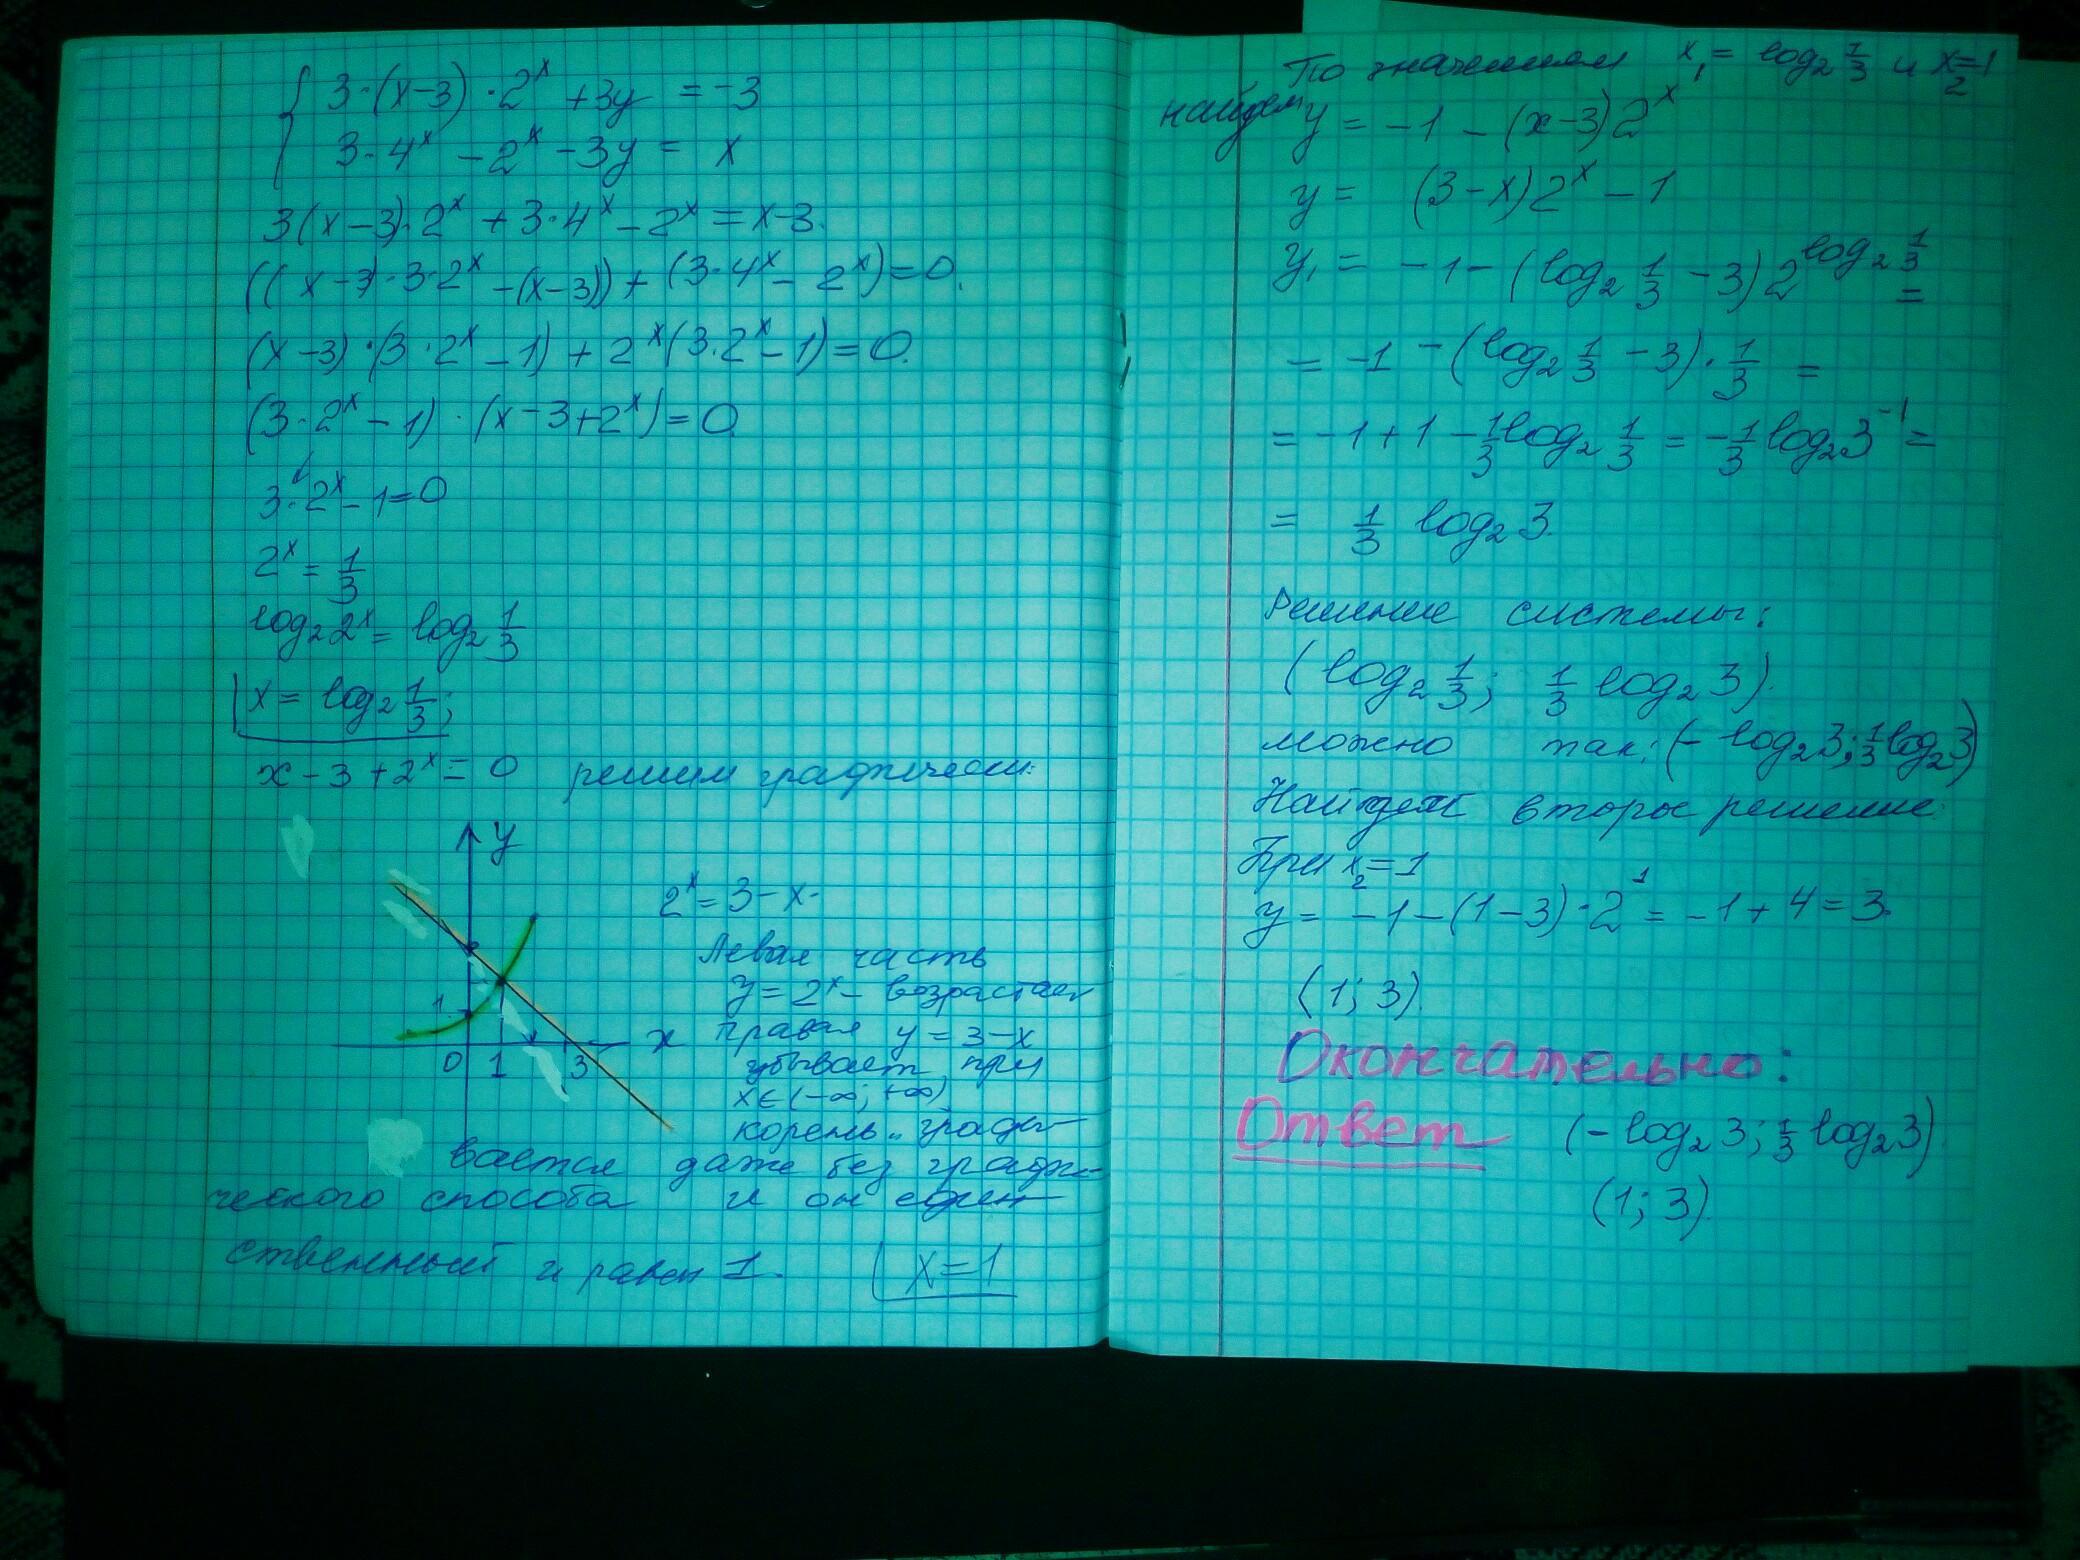 3·(x-3)·2ˣ+3y = -3
3·4ˣ - 2ˣ - 3y = x
3(x-3)·2ˣ + 3·4ˣ - 2ˣ = x-3.
((x-3)·3·2ˣ - (x-3)) + (3·4ˣ - 2ˣ) = 0.
(x-3)·(3·2ˣ - 1) + 2ˣ(3·2ˣ - 1) = 0.
(3·2ˣ - 1)·(x-3+2ˣ) = 0
3·2ˣ - 1 = 0
2ˣ = 1/3
log₂2ˣ = log₂ 1/3
x = log₂ 1/3;
x - 3 + 2ˣ = 0 решим графически:
y
1
0 1 3 x
2ˣ = 3 - x.
Левая часть
y = 2ˣ - возрастает
правая y = 3-x
убывает при
x∈(-∞; +∞)
корень угады-
вается даже без графи-
ческого способа и он един
ственный и равен 1. x=1
По значениям x₁ = log₂ 1/3 и x₂=1
найдем y = -1 - (x-3)2ˣ
y = (3-x)2ˣ - 1
y₁ = -1 - (log₂ 1/3 - 3) 2^(log₂ 1/3) =
= -1 - (log₂ 1/3 - 3)· 1/3 =
= -1+1 - 1/3 log₂ 1/3 = -1/3 log₂3⁻¹ =
= 1/3 log₂ 3.
Решение системы:
(log₂ 1/3; 1/3 log₂ 3).
можно так: (-log₂3; 1/3 log₂3)
Найдем второе решение:
При x₂=1
y = -1-(1-3)·2¹ = -1+4 = 3.
(1; 3).
Окончательно:
Ответ (-log₂ 3; 1/3 log₂ 3)
(1; 3).